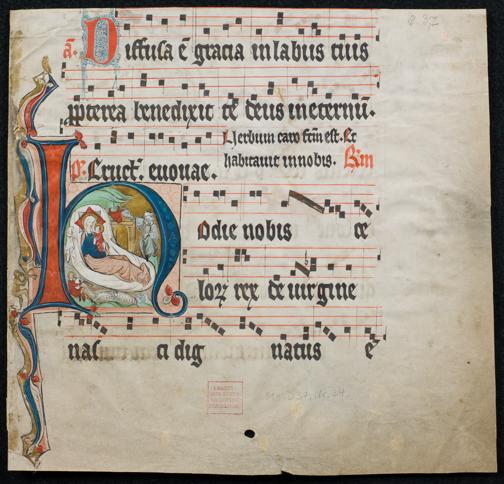 a. Diffusa ē gracia in labiis tuis
ppterea benedixit te deus in eternū.
Verbum caro fcm est. Et
habitavit in nobis. Rm
ps. Eruct. evovae.
Hodie nobis ce
loꝝ rex de virgine
nas ci dig natus ē